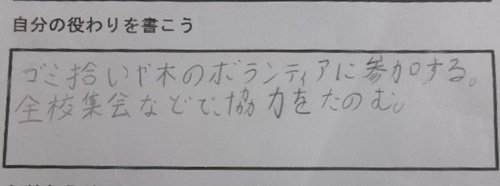 自分の役わりを書こう
ゴミ拾いや木のボランティアに参加する。
全校集会などで、協力をたのむ。